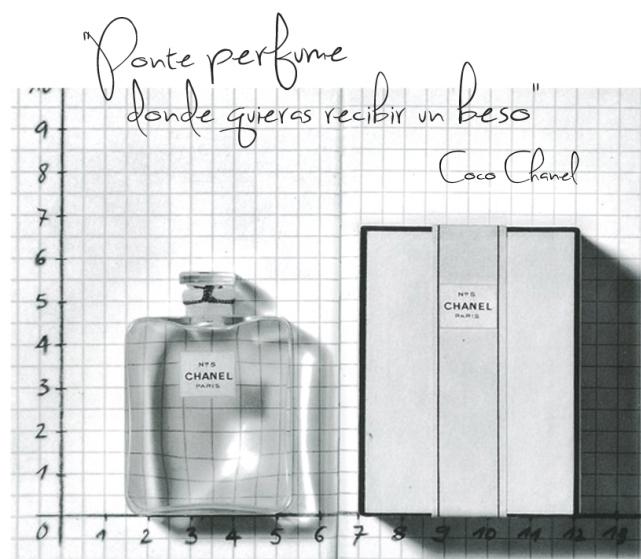 "Ponte perfume
donde quieras recibir un beso"
Coco Chanel
10
9
8
7
6
5
4
3
2
1
0 1 2 3 4 5 6 7 8 9 10 11 12 13
Nº5
CHANEL
PARIS
Nº5
CHANEL
PARIS